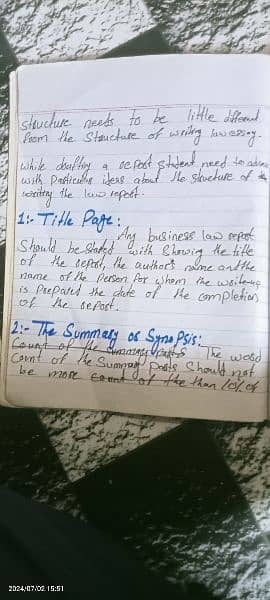 structure needs to be little different
from the structure of writing law essay.
while drafting a report student need to
with particular ideas about the structure of the
writing the law report.
1:- Title Page:
Any business law report
should be started with showing the title
of the report, the author's name and the
name of the person for whom the
is prepared the date of the completion
of the report.
2:- The Summary or Synopsis:
Count of the summary parts The word
Count of the Summary Parts should not
be more count of the than 10% of
2024/07/02 15:51